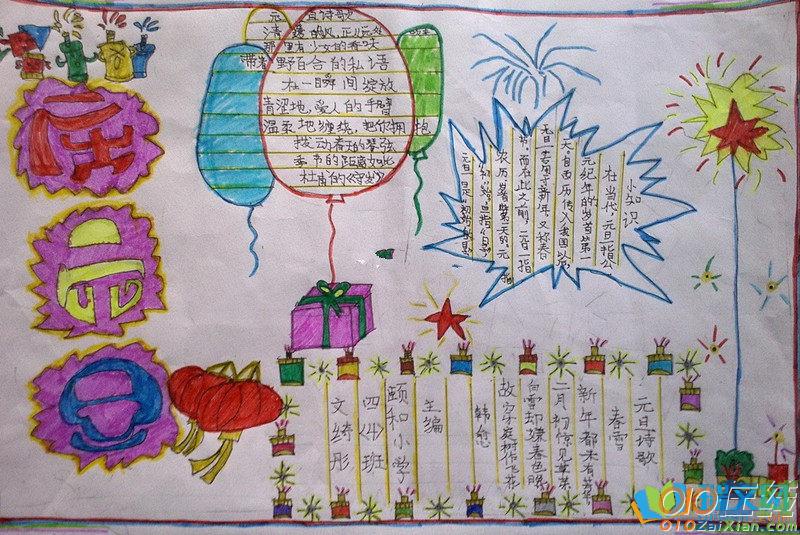 元旦诗歌
那里有少女的春天
带着野百合的私语
在一瞬间绽放
青涩地,爱人的手臂
温柔地缠绕,把你拥抱
拨动春天的琴弦
季节的距离如此
杜甫的《守岁》
小知识
在当代,元旦指公
元纪年的岁首第一
天。自西历传入我国以后,
元旦一词用于新年,又称春
节,而在此之前,元旦一指
农历岁首第一天的。元
元旦诗歌
春雪
新年都未有芳华
二月初惊见草芽
白雪却嫌春色晚
故穿庭树作飞花
韩愈
主编
颐和小学
四(4)班
文绮彤
010在线
010ZaiXian.com